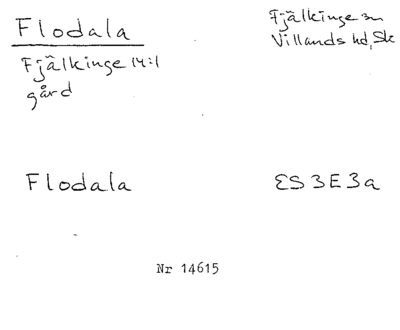 Flodala
Fjälkinge sn
Villands hd, Sk
Fjälkinge 14:1
gård
Flodala
ES 3E3a
Nr 14615